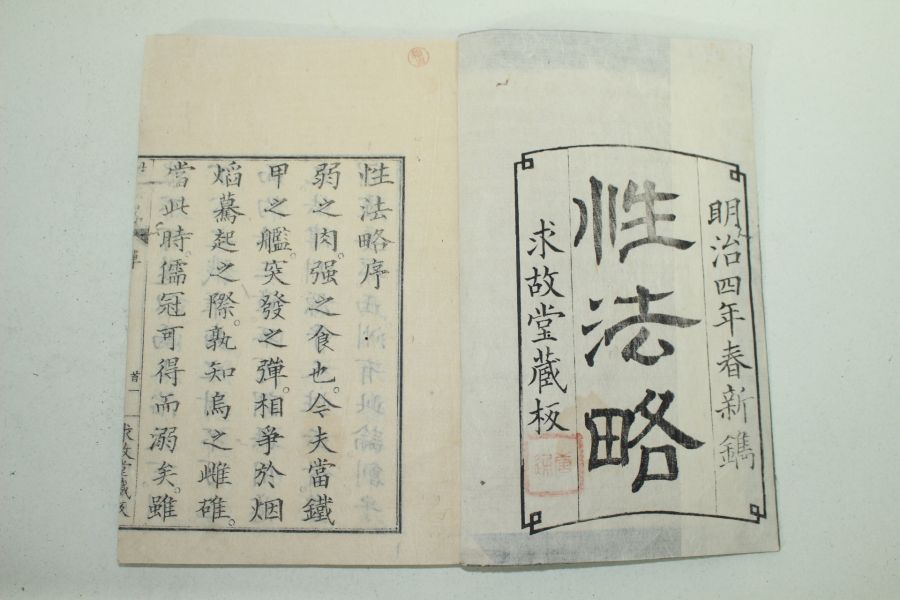 明治四年春新鐫
性法略
求故堂藏板
性法略序
弱之肉。强之食也。今夫當鐵
甲之艦。突發之彈。相爭於烟
焰驀起之際。孰知烏之雌雄。
當此時。儒冠可得而溺矣。雖
首一
求故堂藏板